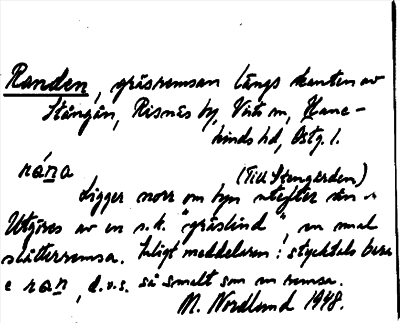 Randen, gräsremsan längs kanten av
Stångån, Risnäs by, Vists sn, Hane-
kinds hd, Östg. l.
rána (Till Stengården)
Ligger norr om byn utefter ån.
Utgöres av en s.k. "gräslind", en smal
slåtterremsa. Enligt meddelaren: stycket
e ran, d.v.s. så smalt som en remsa.
M. Nordlund 1948.